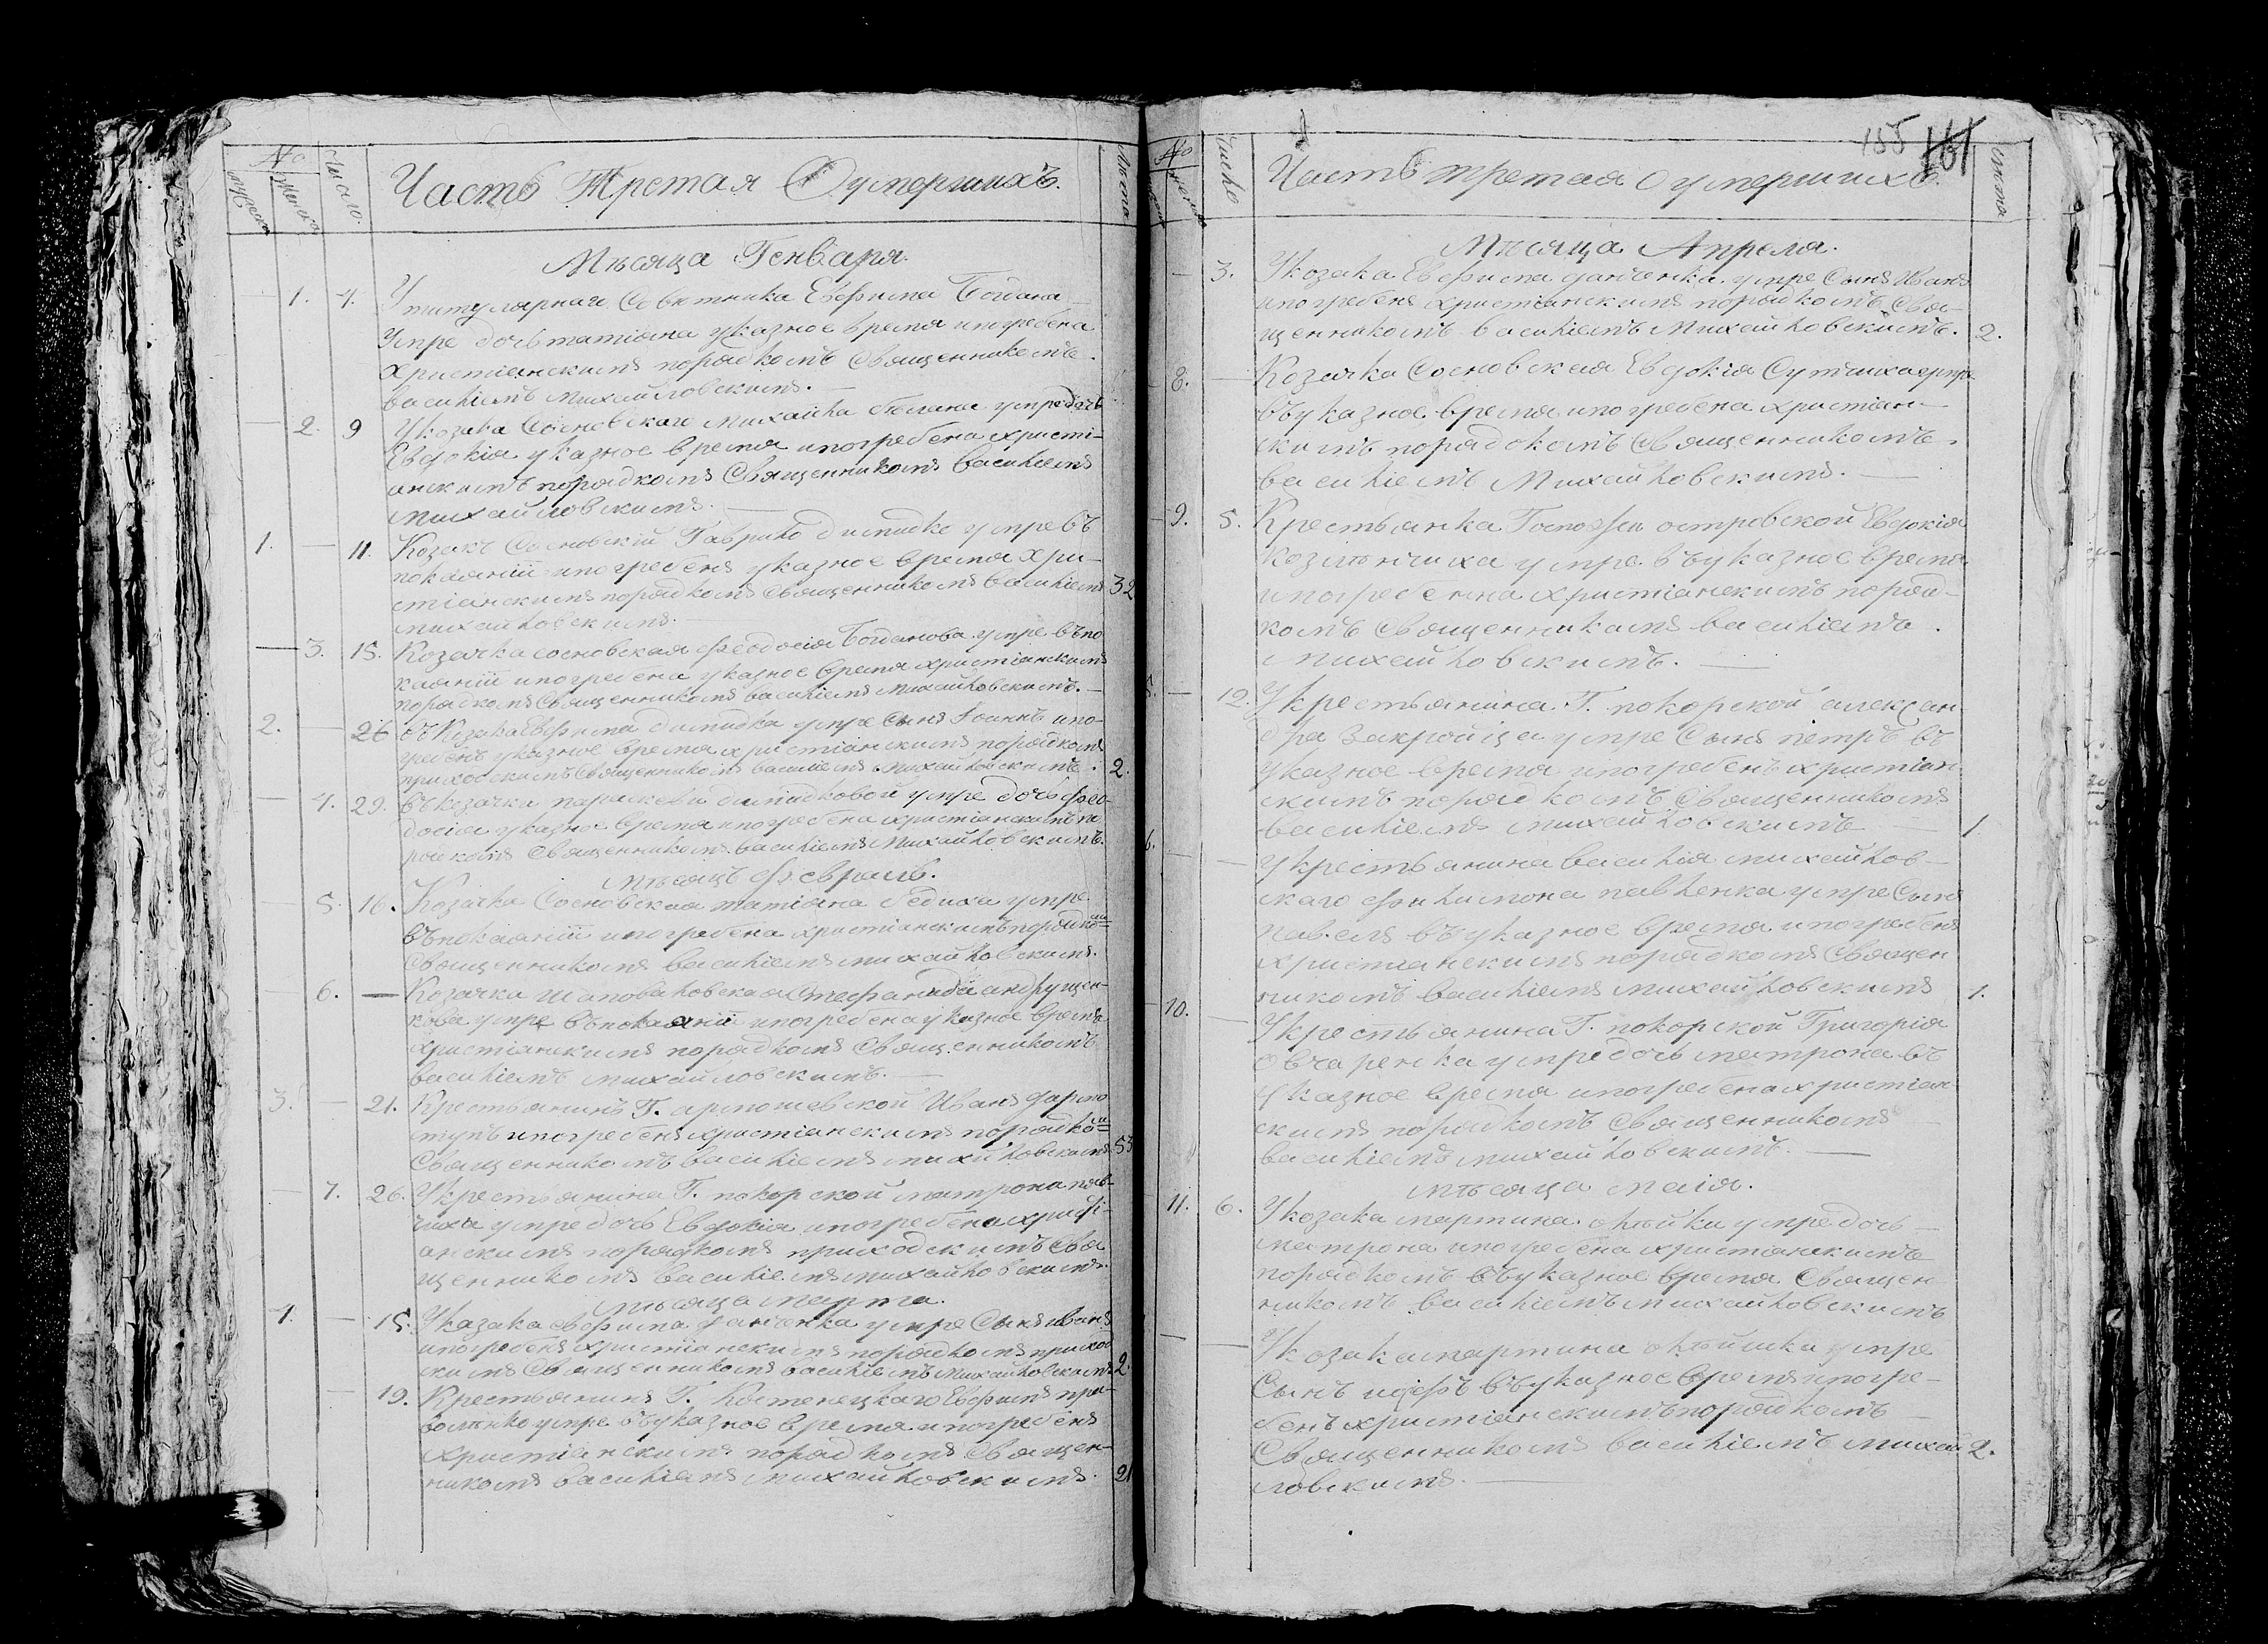 №
Число.
Часть Третая О умершихъ.
Лѣта
мужеска
женска
Мѣсяца Генваря.
1. 4. У титулярнаго Советника Евфима Богдана
умре дочь татіана указное время и погребена
христіанскимъ порядкомъ Священникомъ
василіемъ михайловскимъ. —
— 2. 9 У козака Сосновскаго михайла умре дочь
Евдокія указное время и погребена христі-
анскимъ порядкомъ Священникомъ василіемъ
михайловскимъ. —
1. — 11. Козакъ Сосновскій Гаврило умре въ
покаяніи и погребенъ указное время хри-
стіанскимъ порядкомъ Священникомъ василіемъ 32
михайловскимъ. —
— 3. 15. Козачка сосновская феодосія Богданова умре въ по
каяніи и погребена указное время христіанскимъ
порядкомъ Священникомъ василіемъ михайловскимъ. —
2. — 26 въ Козака Евфима умре Сынъ Іоаннъ и по-
гребенъ указное время христіанскимъ порядкомъ
приходскимъ Священникомъ василіемъ михайловскимъ. 2.
— 4. 29. въ козачки параскевы умре дочь фео-
досія указное время и погребена христіанскимъ по
рядкомъ Священникомъ василіемъ михайловскимъ.
Мѣсяцъ февраль.
5. 16. Козачка Сосновская татіана умре
въ покаяніи и погребена христіанскимъ порядкомъ
Священникомъ василіемъ михайловскимъ.
— 6. — Козачка Шаповаловская Стефанида андрущен-
кова умре въ покаяніи и погребена указное время
христіанскимъ порядкомъ Священникомъ
василіемъ михайловскимъ. —
3. — 21. Крестьянинъ Г. Иванъ
и погребенъ христіанскимъ порядкомъ
Священникомъ василіемъ михайловскимъ 53
— 7. 26. У крестьянина Г. покорской матрона
умре дочь Евдокія и погребена христі-
анскимъ порядкомъ приходскимъ Свя
щенникомъ василіемъ михайловскимъ.
Мѣсяца марта.
4. — 15. У казака евфима данченка умре Сынъ иванъ
и погребенъ христіанскимъ порядкомъ приход
скимъ Священникомъ василіемъ михайловскимъ 2.
— 19. Крестьянинъ Г. Костенецкаго Евфимъ
умре въ указное время и погребенъ
христіанскимъ порядкомъ Священ-
никомъ василіемъ михайловскимъ. 21
155 161
№
Число
Часть третая О умершихъ.
Лѣта
Мѣсяца Апреля.
— 3. У козака Евфима данченка умре Сынъ Иванъ
и погребенъ христіанскимъ порядкомъ Свя-
щенникомъ василіемъ Михайловскимъ. 2.
8. — Козачка Сосновская Евдокія умре
въ указное время и погребена христіан-
скимъ порядкомъ Священникомъ
василіемъ Михайловскимъ. —
9. 5. Крестьянка Госпожи островской Евдокія
умре въ указное время
и погребенна христіанскимъ поряд-
комъ Священникомъ василіемъ
михайловскимъ. —
5. — 12. У крестьянина Г. покорской алексан
дра Закройца умре Сынъ петръ въ
указное время и погребенъ христіан
скимъ порядкомъ Священникомъ
василіемъ михайловскимъ — 1.
6. — — У крестьянина василія михайлов-
скаго филимона павленка умре Сынъ
павелъ въ указное время и погребенъ
христіанскимъ порядкомъ Священ
никомъ василіемъ михайловскимъ 1.
10. — У крестьянина Г. покорской Григорія
Овчаренка умре дочь матрона въ
указное время и погребена христіан
скимъ порядкомъ Священникомъ
василіемъ михайловскимъ. —
мѣсяца маія.
11. 6. У козака мартина умре дочь —
матрона и погребена христіанскимъ
порядкомъ въ указное время Священ
никомъ василіемъ михайловскимъ
— — У козака мартина умре
Сынъ въ указное время и погре-
бенъ христіанскимъ порядкомъ
Священникомъ василіемъ михай 2.
ловскимъ. —